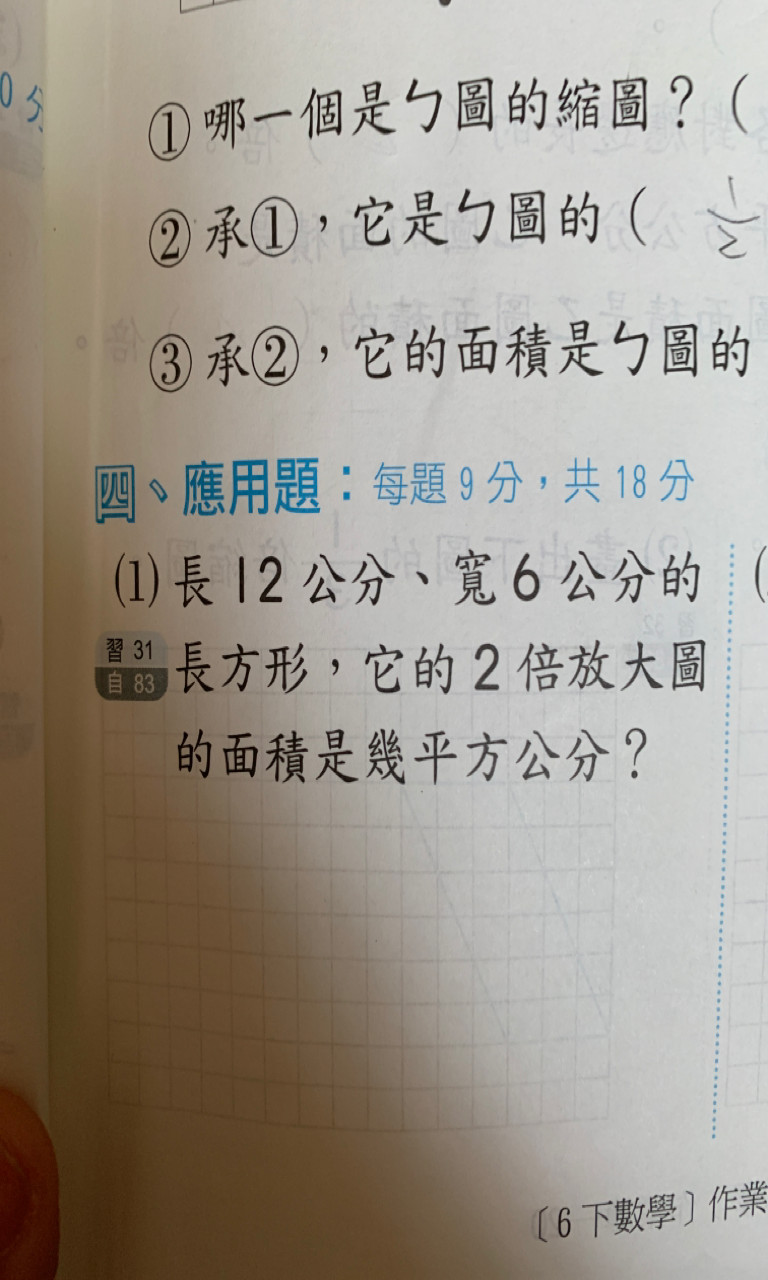 0 分
①哪一個是ㄅ圖的縮圖？(
②承①，它是ㄅ圖的( 1/2
③承②，它的面積是ㄅ圖的
四、應用題：每題 9 分，共 18 分
(1) 長 12 公分、寬 6 公分的
習 31
自 83
長方形，它的 2 倍放大圖
的面積是幾平方公分？
〔6 下數學〕作業